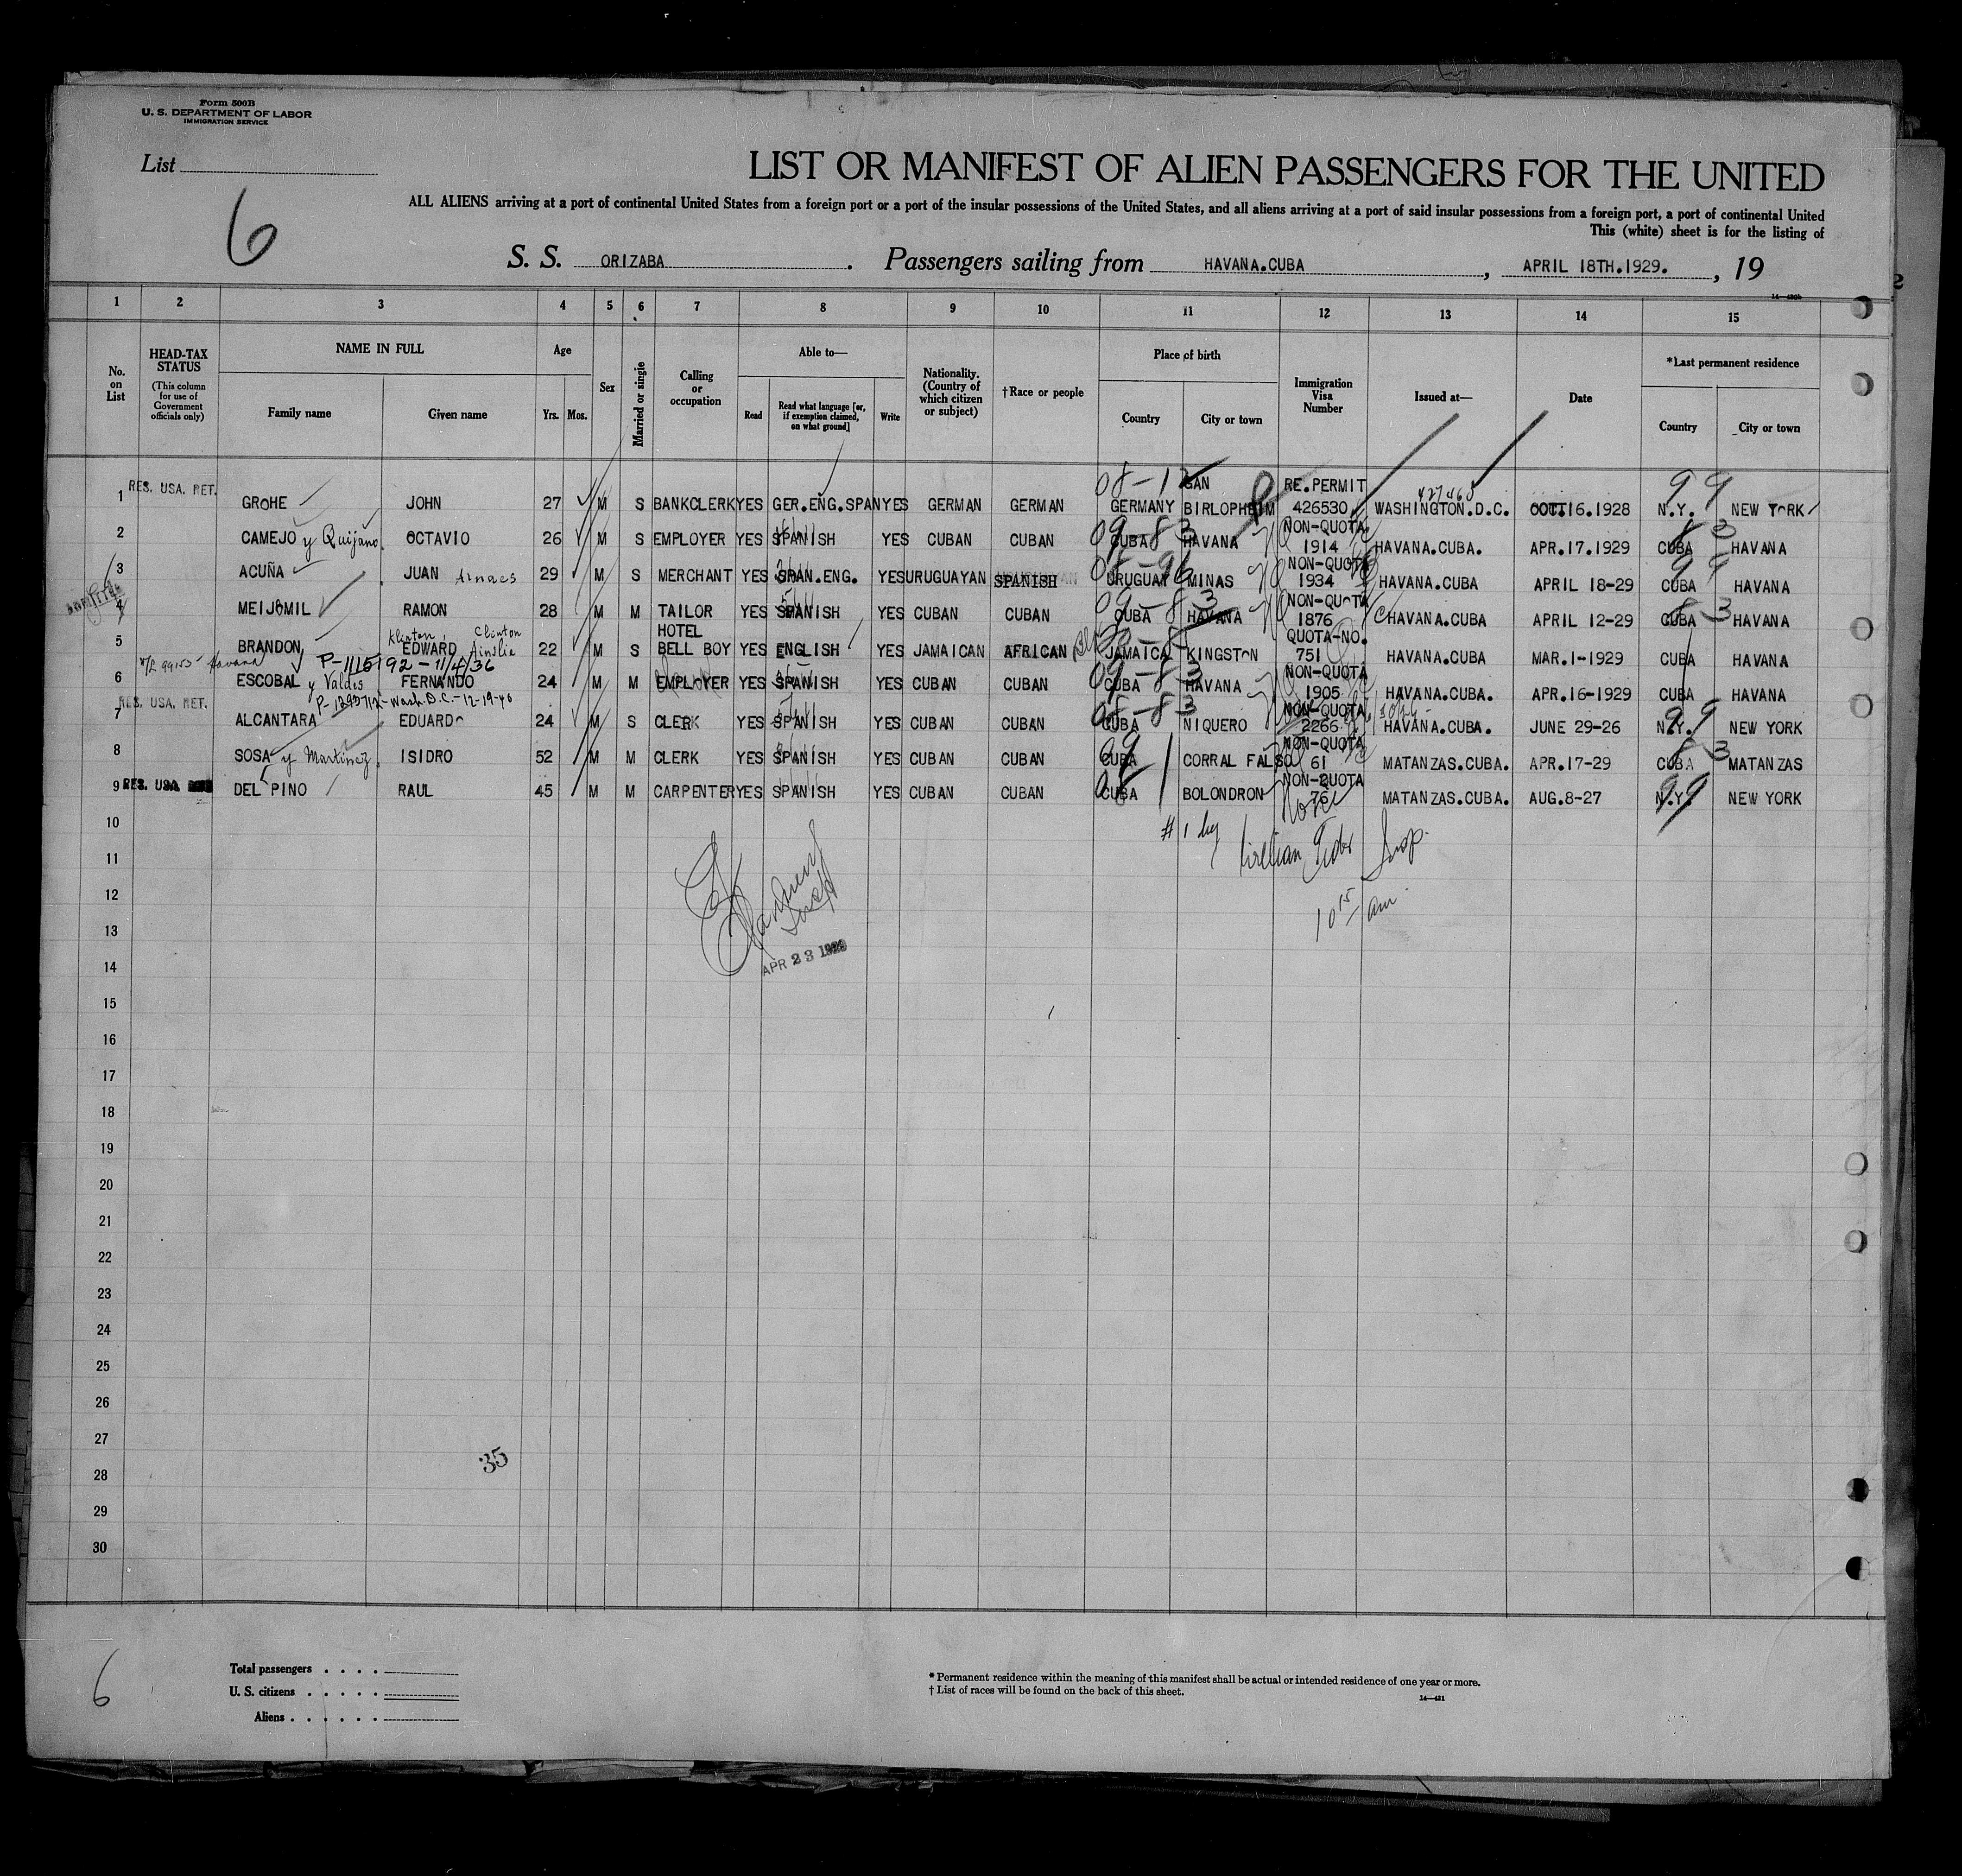 Form 500B
U. S. DEPARTMENT OF LABOR
IMMIGRATION SERVICE
List
6
LIST OR MANIFEST OF ALIEN PASSENGERS FOR THE UNITED
ALL ALIENS arriving at a port of continental United States from a foreign port or a port of the insular possessions of the United States, and all aliens arriving at a port of said insular possessions from a foreign port, a port of continental United
This (white) sheet is for the listing of
S. S. ORIZABA. Passengers sailing from HAVANA.CUBA, APRIL 18TH.1929., 19
1 2 3 4 5 6 7 8 9 10 11 12 13 14 15
No. on List
HEAD-TAX STATUS (This column for use of Government officials only)
NAME IN FULL
Family name Given name
Age
Yrs. Mos.
Sex
Married or single
Calling or occupation
Able to—
Read Read what language [or, if exemption claimed, on what ground] Write
Nationality. (Country of which citizen or subject)
†Race or people
Place of birth
Country City or town
Immigration Visa Number
Issued at—
Date
*Last permanent residence
Country City or town
RES. USA. RET. 08-12 GAN RE.PERMIT 99
1 GROHE JOHN 27 M S BANKCLERK YES GER.ENG.SPAN YES GERMAN GERMAN GERMANY BIRLOPHEIM 426530 WASHINGTON.D.C. OCT.16.1928 N.Y. NEW YORK
NON-QUOTA
2 CAMEJO y Quijano OCTAVIO 26 M S EMPLOYER YES SPANISH YES CUBAN CUBAN CUBA HAVANA 1914 HAVANA.CUBA. APR.17.1929 CUBA HAVANA
NON-QUOTA
3 ACUÑA JUAN 29 M S MERCHANT YES SPAN.ENG. YES URUGUAYAN SPANISH URUGUAY MINAS 1934 HAVANA.CUBA APRIL 18-29 CUBA HAVANA
NON-QUOTA
4 MEIJOMIL RAMON 28 M M TAILOR YES SPANISH YES CUBAN CUBAN CUBA HAVANA 1876 HAVANA.CUBA APRIL 12-29 CUBA HAVANA
Klinton Clinton HOTEL QUOTA-NO.
5 BRANDON EDWARD Ainslia 22 M S BELL BOY YES ENGLISH YES JAMAICAN AFRICAN JAMAICA KINGSTON 751 HAVANA.CUBA MAR.1-1929 CUBA HAVANA
Havana P-1115192-11/4/36 NON-QUOTA
6 ESCOBAL y Valdes FERNANDO 24 M M EMPLOYER YES SPANISH YES CUBAN CUBAN CUBA HAVANA 1905 HAVANA.CUBA. APR.16-1929 CUBA HAVANA
RES. USA. RET. Wash.D.C.-12-19-40 NON-QUOTA
7 ALCANTARA EDUARDO 24 M S CLERK YES SPANISH YES CUBAN CUBAN CUBA NIQUERO 2266 HAVANA.CUBA. JUNE 29-26 N.Y. NEW YORK
NON-QUOTA
8 SOSA y Martinez ISIDRO 52 M M CLERK YES SPANISH YES CUBAN CUBAN CUBA CORRAL FALSO 61 MATANZAS.CUBA. APR.17-29 CUBA MATANZAS
RES. USA NON-QUOTA
9 DEL PINO RAUL 45 M M CARPENTER YES SPANISH YES CUBAN CUBAN CUBA BOLONDRON 76 MATANZAS.CUBA. AUG.8-27 N.Y. NEW YORK
10
# 1 by Insp.
11
12
10 15 am
13
APR 23 1929
14
15
16
17
18
19
20
21
22
23
24
25
26
27
35
28
29
30
6
Total passengers . . . .
U. S. citizens . . . . .
Aliens . . . . . .
* Permanent residence within the meaning of this manifest shall be actual or intended residence of one year or more.
† List of races will be found on the back of this sheet.
14—421